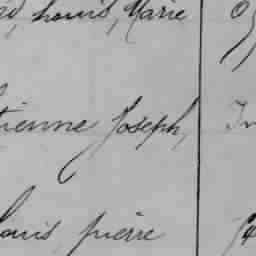 louis, Marie
tienne Joseph,
Louis pierre